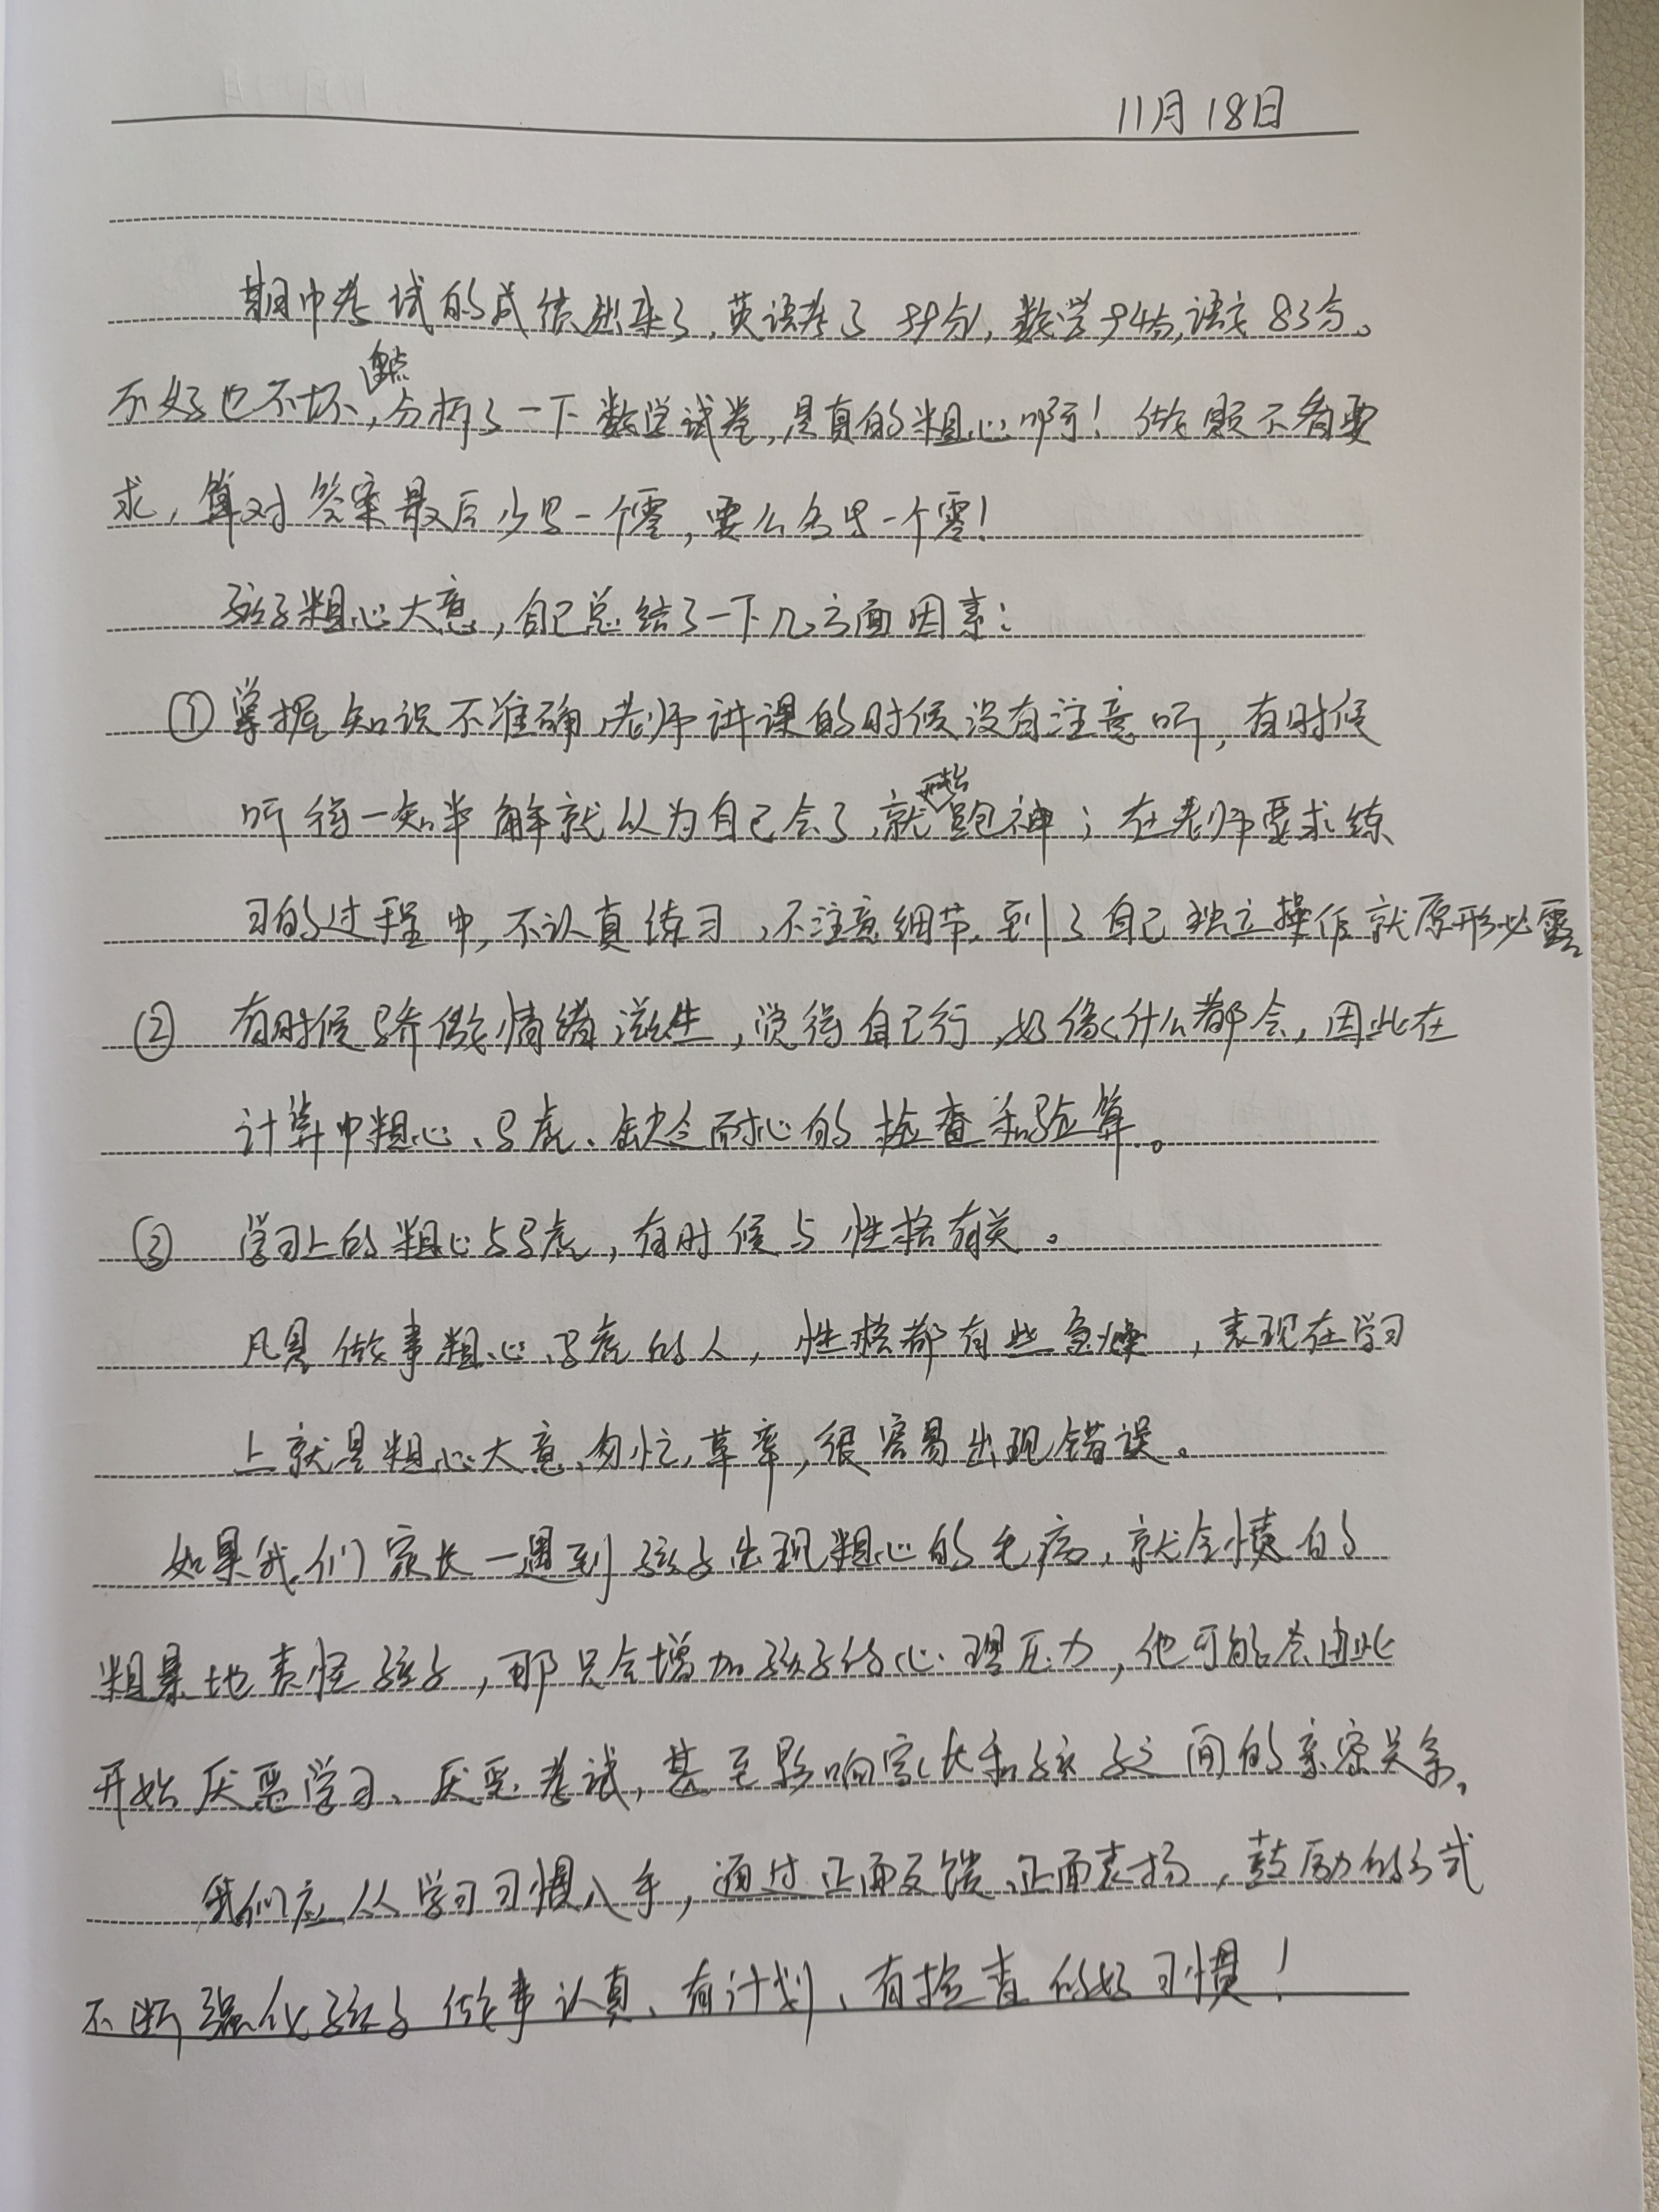 11月18日
期中考试的成绩出来了,英语考了99分,数学94分,语文83分。
不好也不坏,重点分析了一下数学试卷,是真的粗心啊!做题不看要
求,算对答案最后少写一个零,要么多写一个零!
孩子粗心大意,自己总结了一下几方面因素:
①掌握知识不准确,老师讲课的时候没有注意听,有时候
听得一知半解就以为自己会了,就开始跑神;在老师要求练
习的过程中,不认真练习,不注意细节,到了自己独立操作就原形必露
② 有时候骄傲情绪滋生,觉得自己行,好像什么都会,因此在
计算中粗心、马虎、缺乏耐心的检查和验算。
③ 学习上的粗心与马虎,有时候与性格有关。
凡是做事粗心、马虎的人,性格都有些急燥,表现在学习
上就是粗心大意、匆忙,草率,很容易出现错误。
如果我们家长一遇到孩子出现粗心的毛病,就会愤的
粗暴地责怪孩子,那只会增加孩子的心理压力,他可能会由此
开始厌恶学习、厌恶考试,甚至影响家长和孩子之间的亲密关系。
我们应从学习习惯入手,通过正面反馈、正面表扬,鼓励的方式
不断强化孩子做事认真、有计划、有检查的好习惯!